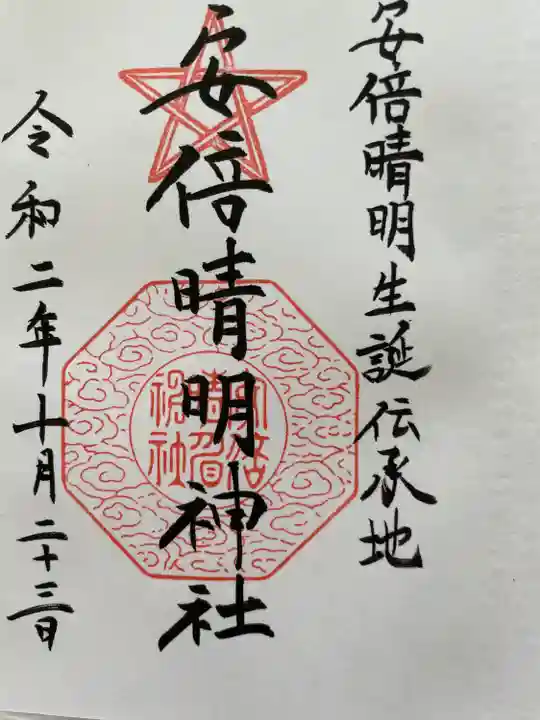 安倍晴明生誕伝承地
安倍晴明神社
令和二年十月二十三日
安倍
晴明
神社